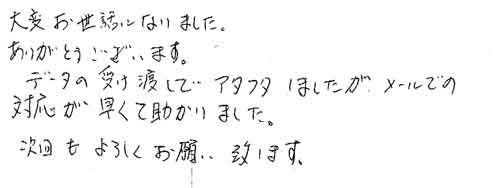 大変お世話になりました。
ありがとうございます。
データの受け渡しで アタフタしましたが、メールでの
対応が早くて助かりました。
次回もよろしくお願い致します。